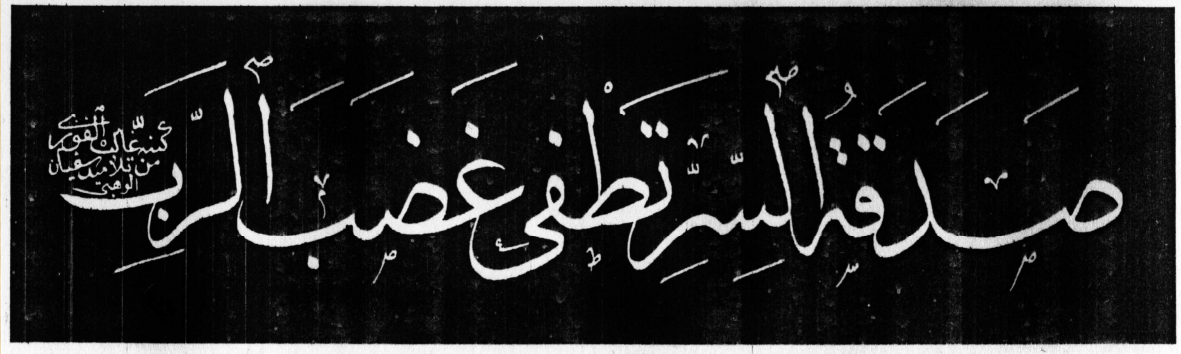 صَدَقَةُ السِّرِّ تَطْفِئ غَضَبَ الرَّبِ
كتبه
من تلاميذ سفيان
الوهبي